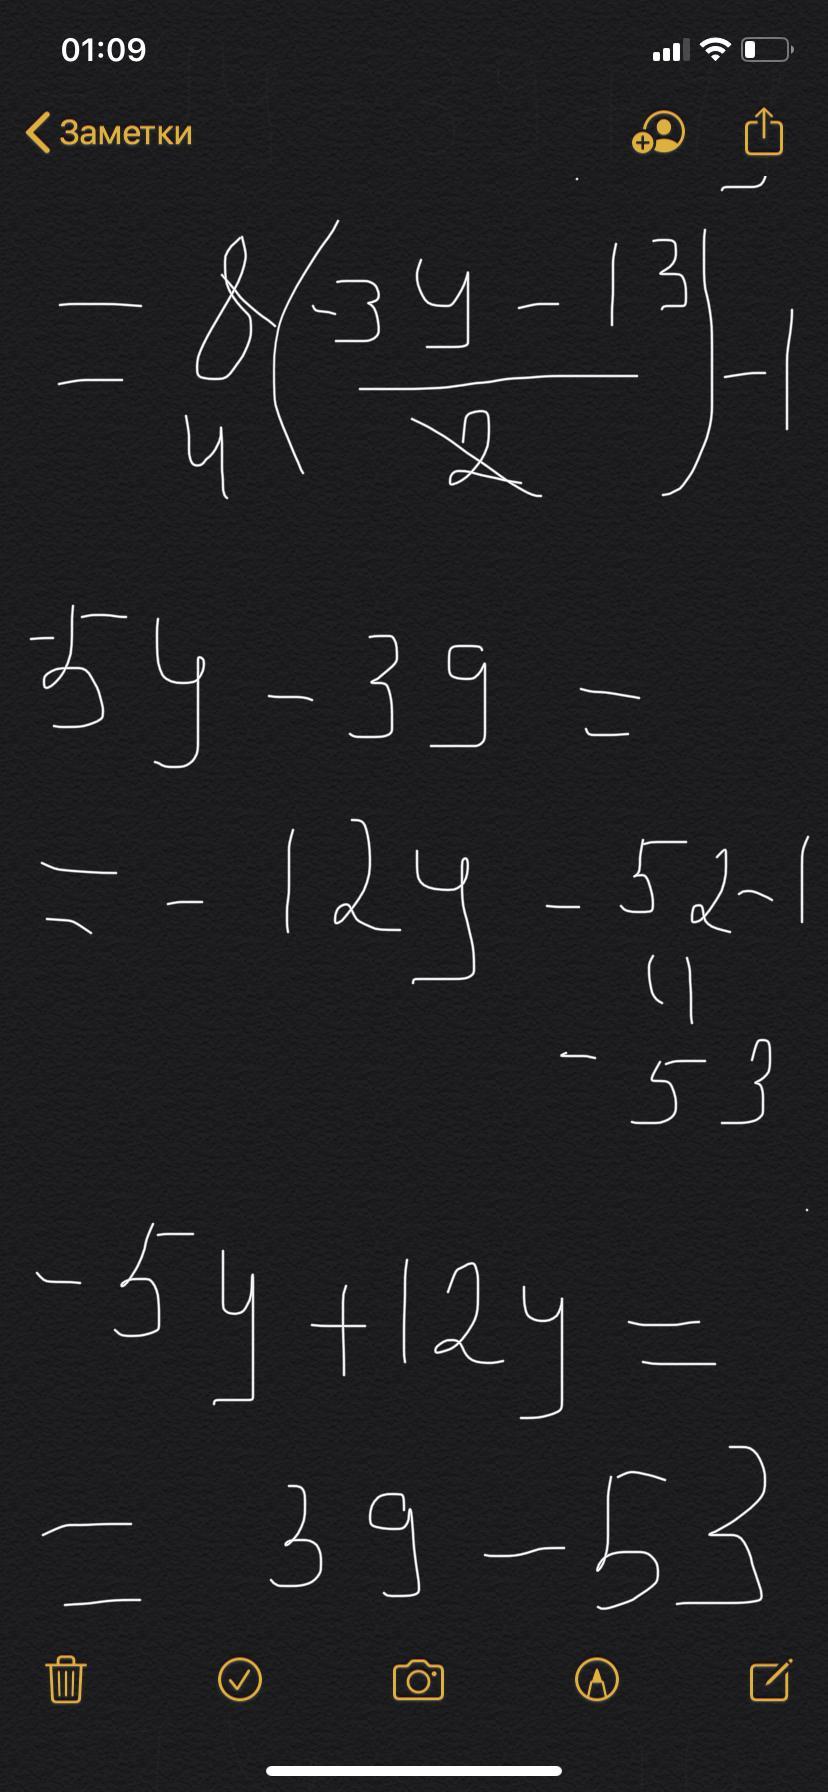 01:09
Заметки
= 8(-3y - 13) - 1
4 2
-5y - 39 =
= - 12y - 52 - 1
4
- 53
- 5y + 12y =
= 39 - 53